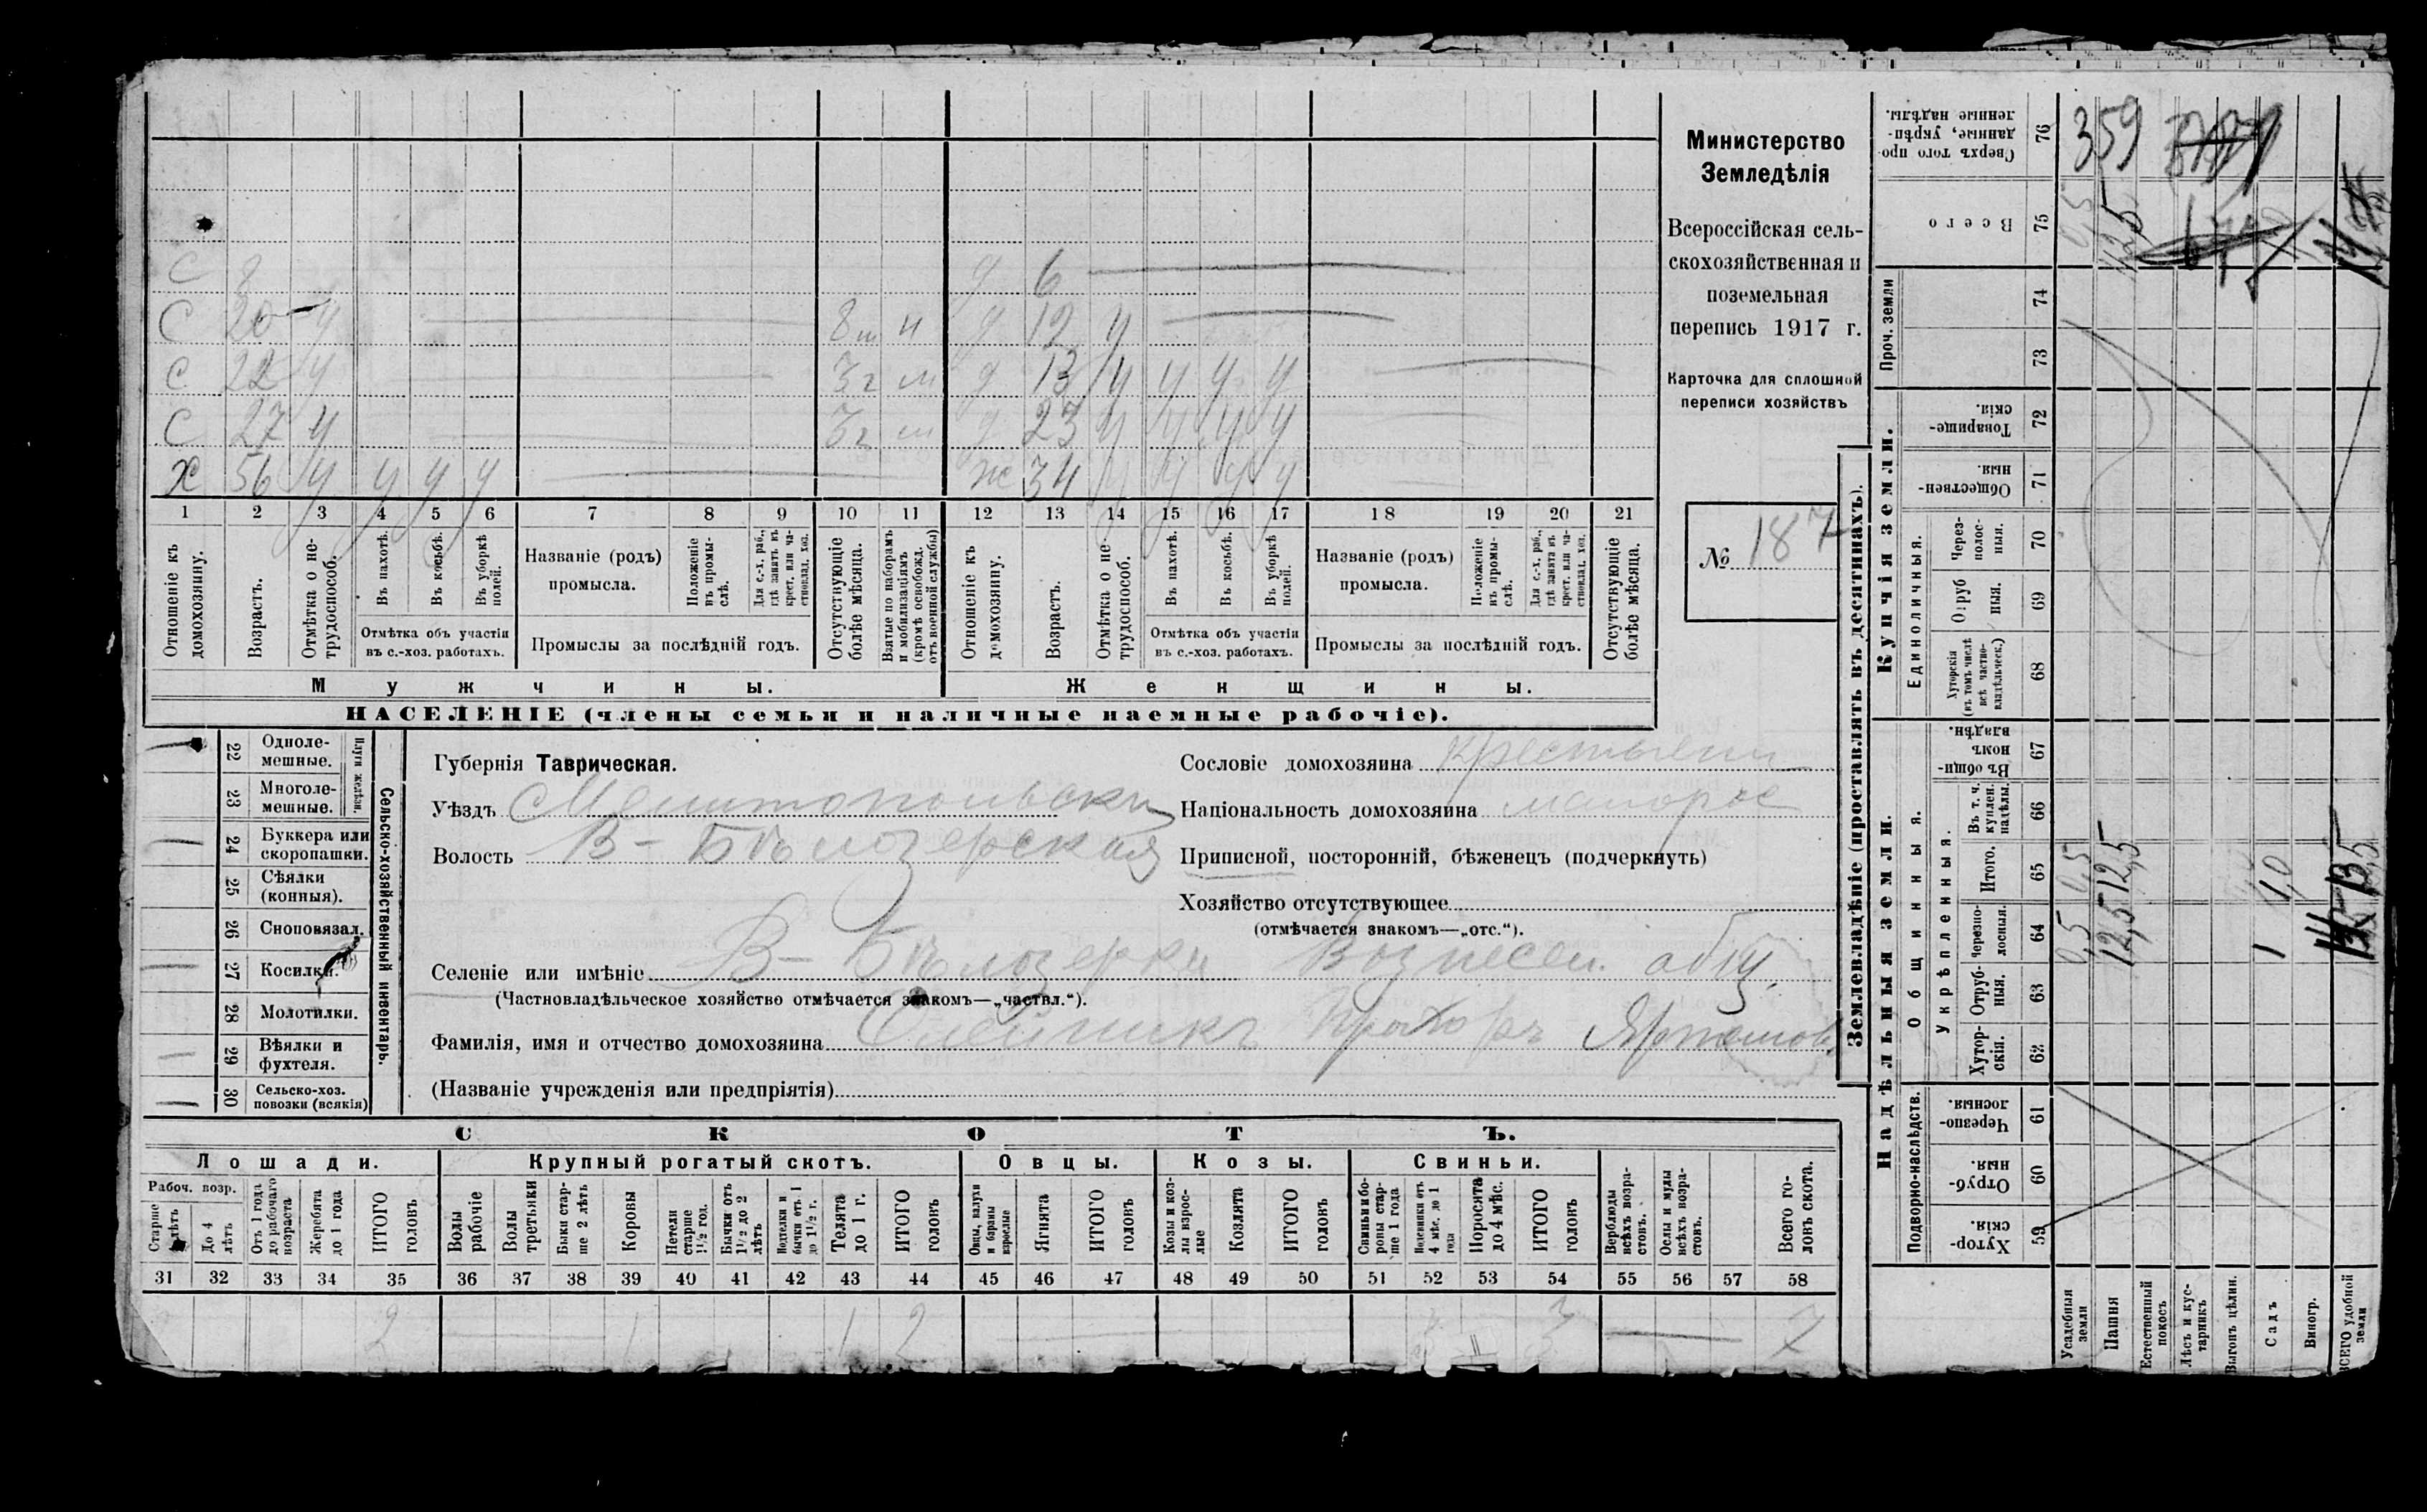 Министерство
Земледѣлія
Всероссійская сель-
скохозяйственная и
поземельная
перепись 1917 г.
Карточка для сплошной
переписи хозяйствъ
№ 187
С 8
д 6
С 20 у
8 м н
д 12 у
С 22 у
3 г м
д 13 у у у у
С 27 у
3 г м
д 23 у у у у
Х 56 у у у у
ж 34 у у у у
1 2 3 4 5 6 7 8 9 10 11 12 13 14 15 16 17 18 19 20 21
Отношеніе къ домохозяину.
Возрастъ.
Отмѣтка о не-трудоспособ.
Въ пахотѣ.
Въ косьбѣ.
Въ уборкѣ полей.
Отмѣтка объ участіи въ с.-хоз. работахъ.
Названіе (родъ) промысла.
Положеніе въ промы-слѣ.
Для с.-х. раб., гдѣ занятъ въ крест. или ча-стновлад. хоз.
Промыслы за послѣдній годъ.
Отсутствующіе болѣе мѣсяца.
Взятые по наборамъ и мобилизаціямъ (кромѣ освобожд. отъ военной службы)
Отношеніе къ домохозяину.
Возрастъ.
Отмѣтка о не трудоспособ.
Въ пахотѣ.
Въ косьбѣ.
Въ уборкѣ полей.
Отмѣтка объ участіи въ с.-хоз. работахъ.
Названіе (родъ) промысла.
Положеніе въ промы-слѣ.
Для с.-х. раб., гдѣ занята въ крест. или ча-стновлад. хоз.
Промыслы за послѣдній годъ.
Отсутствующіе болѣе мѣсяца.
Мужчины.
Женщины.
НАСЕЛЕНІЕ (члены семьи и наличные наемные рабочіе).
Сельско-хозяйственный инвентарь.
Плуги желѣзн.
22 Одноле-мешные.
23 Многоле-мешные.
24 Буккера или скоропашки.
25 Сѣялки (конныя).
26 Сноповязал.
27 Косилки.
28 Молотилки.
29 Вѣялки и фухтеля.
30 Сельско-хоз. повозки (всякія)
Губернія Таврическая.
Уѣздъ Мелитопольскій
Волость В-Бѣлозерская
Сословіе домохозяина крестьянин
Національность домохозяина малорос
Приписной, посторонній, бѣженецъ (подчеркнуть)
Хозяйство отсутствующее
(отмѣчается знакомъ—„отс.“).
Селеніе или имѣніе В-Бѣлозерка Вознесен. общ.
(Частновладѣльческое хозяйство отмѣчается знакомъ—„частвл.“).
Фамилія, имя и отчество домохозяина Олейникъ Прохоръ Артемов.
(Названіе учрежденія или предпріятія)
СКОТЪ.
Лошади.
Крупный рогатый скотъ.
Овцы.
Козы.
Свиньи.
Рабоч. возр.
Старше 4 лѣтъ
До 4 лѣтъ
Отъ 1 года до рабочаго возраста
Жеребята до 1 года
ИТОГО головъ
Волы рабочіе
Волы третьяки
Быки стар-ше 2 лѣтъ
Коровы
Нетели старше 1½ год.
Бычки отъ 1½ до 2 лѣтъ
Подтелки и бычки отъ 1 до 1½ г.
Телята до 1 г.
ИТОГО головъ
Овцы, валухи и бараны взрослые
Ягнята
ИТОГО головъ
Козы и коз-лы взрос-лые
Козлята
ИТОГО головъ
Свиньи и бо-ровы стар-ше 1 года
Подсвинки отъ 4 мѣс. до 1 года
Поросята до 4 мѣс.
ИТОГО головъ
Верблюды всѣхъ возра-стовъ.
Ослы и мулы всѣхъ возра-стовъ.
Всего го-ловъ скота.
31 32 33 34 35 36 37 38 39 40 41 42 43 44 45 46 47 48 49 50 51 52 53 54 55 56 57 58
2 1 1 2 3 3 7
Землевладѣніе (проставлять въ десятинахъ).
Надѣльныя земли.
Купчія земли.
Проч. земли
Подворно-наслѣдств.
Общинныя.
Укрѣпленныя.
Единоличныя.
Сверхъ того про-данные, укрѣп-ленные надѣлы. 76
Всего 75
74
73
Товарище-скія. 72
Обществен-ныя. 71
Через-полос-ныя. 70
Отруб ныя. 69
Хуторскія (въ томъ числѣ всѣ частно-владѣльческ.) 68
Въ общи-номъ владѣн. 67
Въ т. ч. куплен. надѣлы. 66
Итого. 65
Черезпо-лосныя. 64
Отруб-ныя. 63
Хутор-скія. 62
Черезпо-лосныя. 61
Отруб-ныя 60
Хутор-скія. 59
Усадебныя земли
Пашня
Естественный покосъ
Лѣсъ и кус-тарникъ
Выгонъ цѣлин.
Садъ
Виногр.
ВСЕГО удобной земли
359
0,5
12,5
0,5
12,5
1,0
0,5
12,5
1